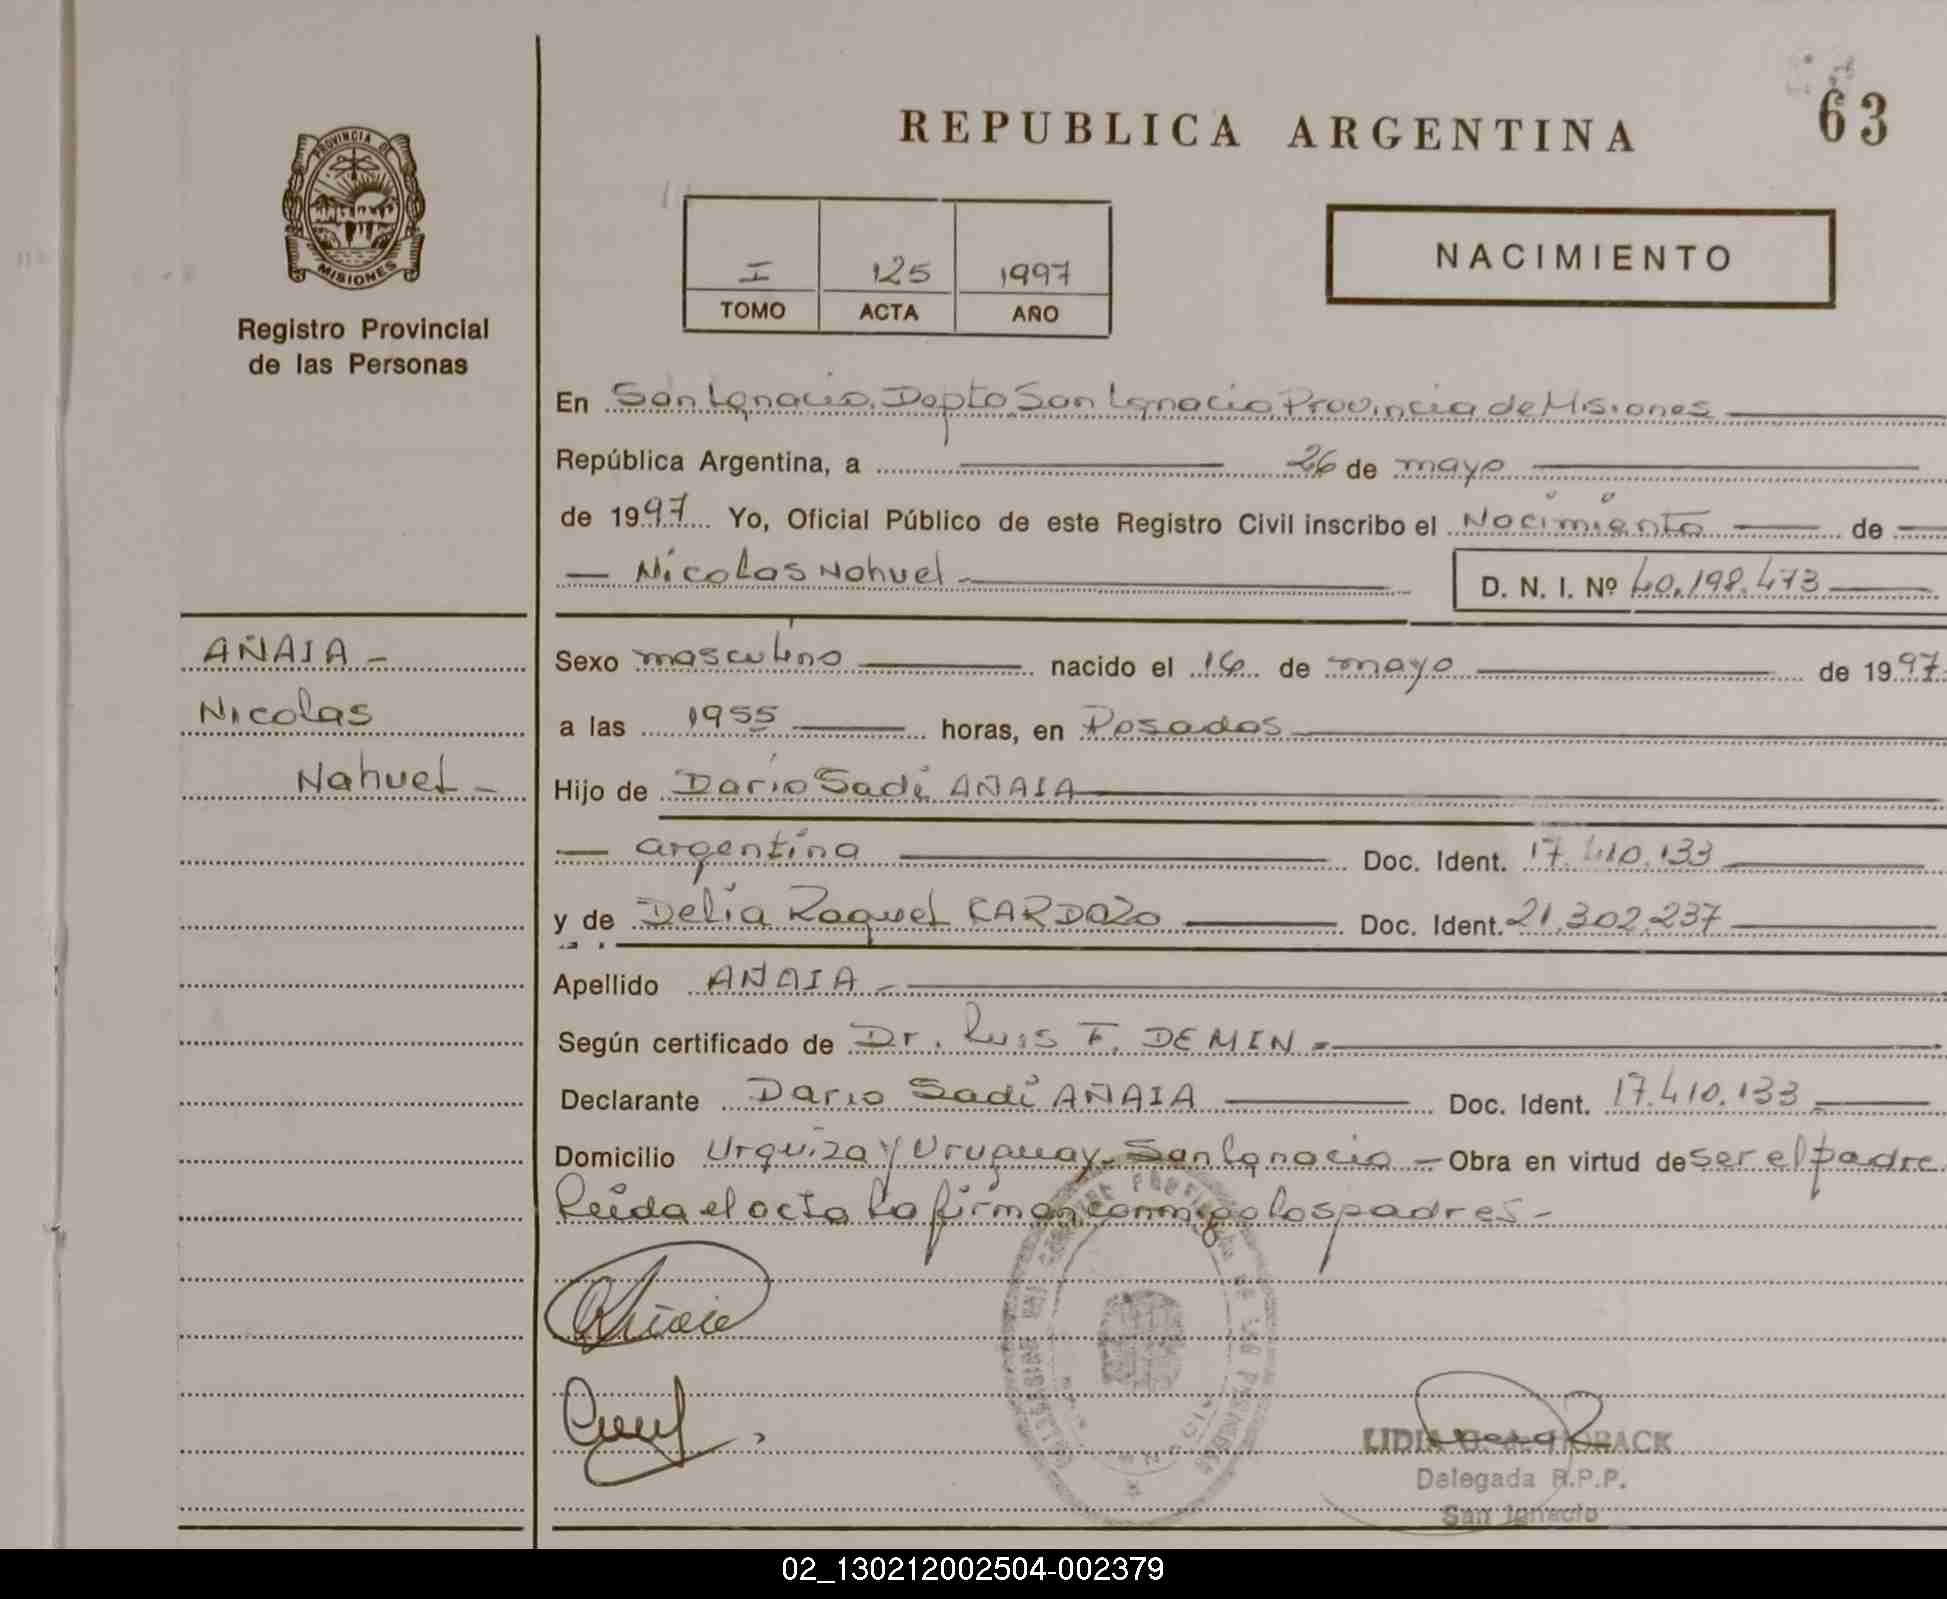 REPUBLICA ARGENTINA
63
PROVINCIA DE
MISIONES
Registro Provincial
de las Personas
I 125 1997
TOMO ACTA AÑO
NACIMIENTO
En San Ignacio, Depto San Ignacio Provincia de Misiones
República Argentina, a 26 de mayo
de 1997 Yo, Oficial Público de este Registro Civil inscribo el Nacimiento de
Nicolas Nahuel D. N. I. Nº 40.198.473
AÑAIA -
Nicolas
Nahuel -
Sexo masculino nacido el 16 de mayo de 1997
a las 1955 horas, en Posadas
Hijo de Dario Sadí AÑAIA
argentina Doc. Ident. 17.410.133
y de Delia Raquel CARDOZO Doc. Ident. 21.302.237
Apellido AÑAIA -
Según certificado de Dr. Luis F. DEMIN -
Declarante Dario Sadí AÑAIA Doc. Ident. 17.410.133
Domicilio Urquiza y Uruguay - San Ignacio - Obra en virtud de ser el padre
Leida el acta la firman conmigo los padres -
LIDIA
Delegada R.P.P.
San Ignacio
02_130212002504-002379